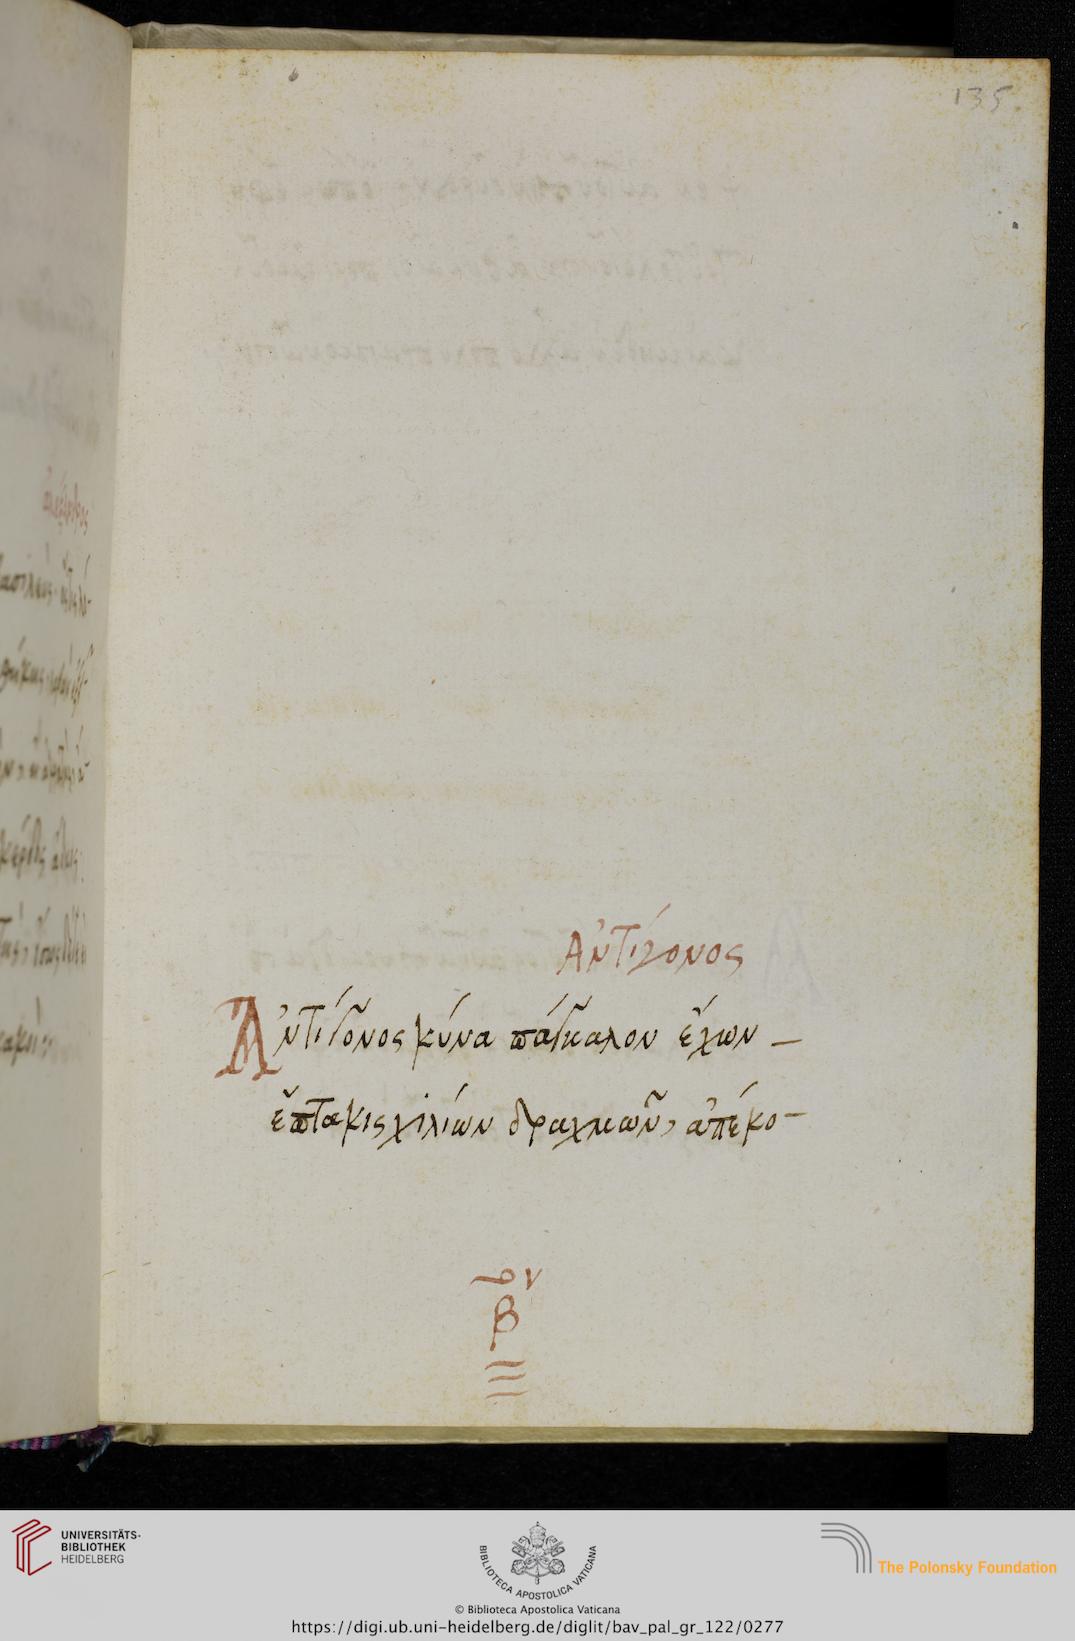 135
Ἀντίγονος
Ἀντίγονος κύνα πάγκαλον ἔχων
ἑπτακισχιλίων δραχμῶν, ἀπέκο-
β
UNIVERSITÄTS-
BIBLIOTHEK
HEIDELBERG
BIBLIOTECA APOSTOLICA VATICANA
The Polonsky Foundation
© Biblioteca Apostolica Vaticana
https://digi.ub.uni-heidelberg.de/diglit/bav_pal_gr_122/0277